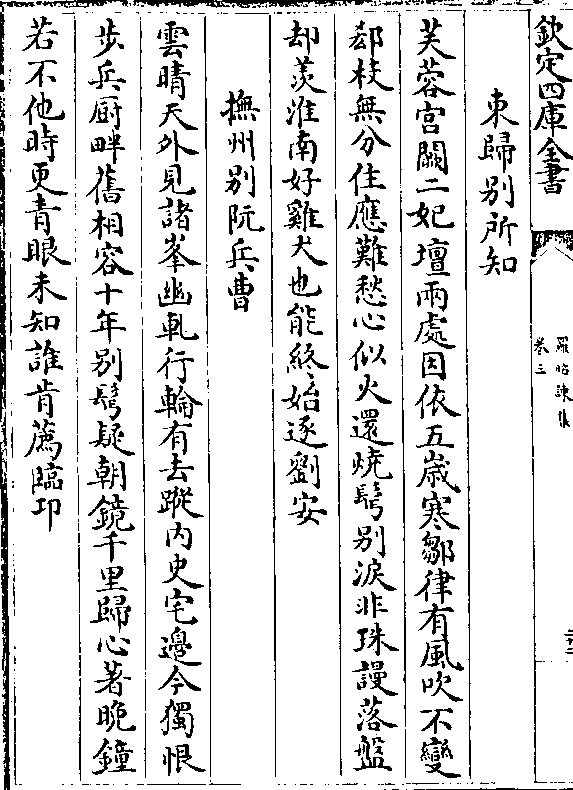 欽定四庫全書
羅昭諫集
卷三
東歸別所知
芙蓉宫闕二妃壇兩處因依五歳寒鄒律有風吹不變
郄枝無分住應難愁心似火還燒鬢别淚非珠謾落盤
却羡淮南好雞犬也能終始逐劉安
撫州别阮兵曹
雲晴天外見諸峯幽軋行輪有去蹤内史宅邉今獨恨
步兵厨畔舊相容十年别鬢疑朝鏡千里歸心著晚鐘
若不他時更青眼未知誰肯薦臨邛